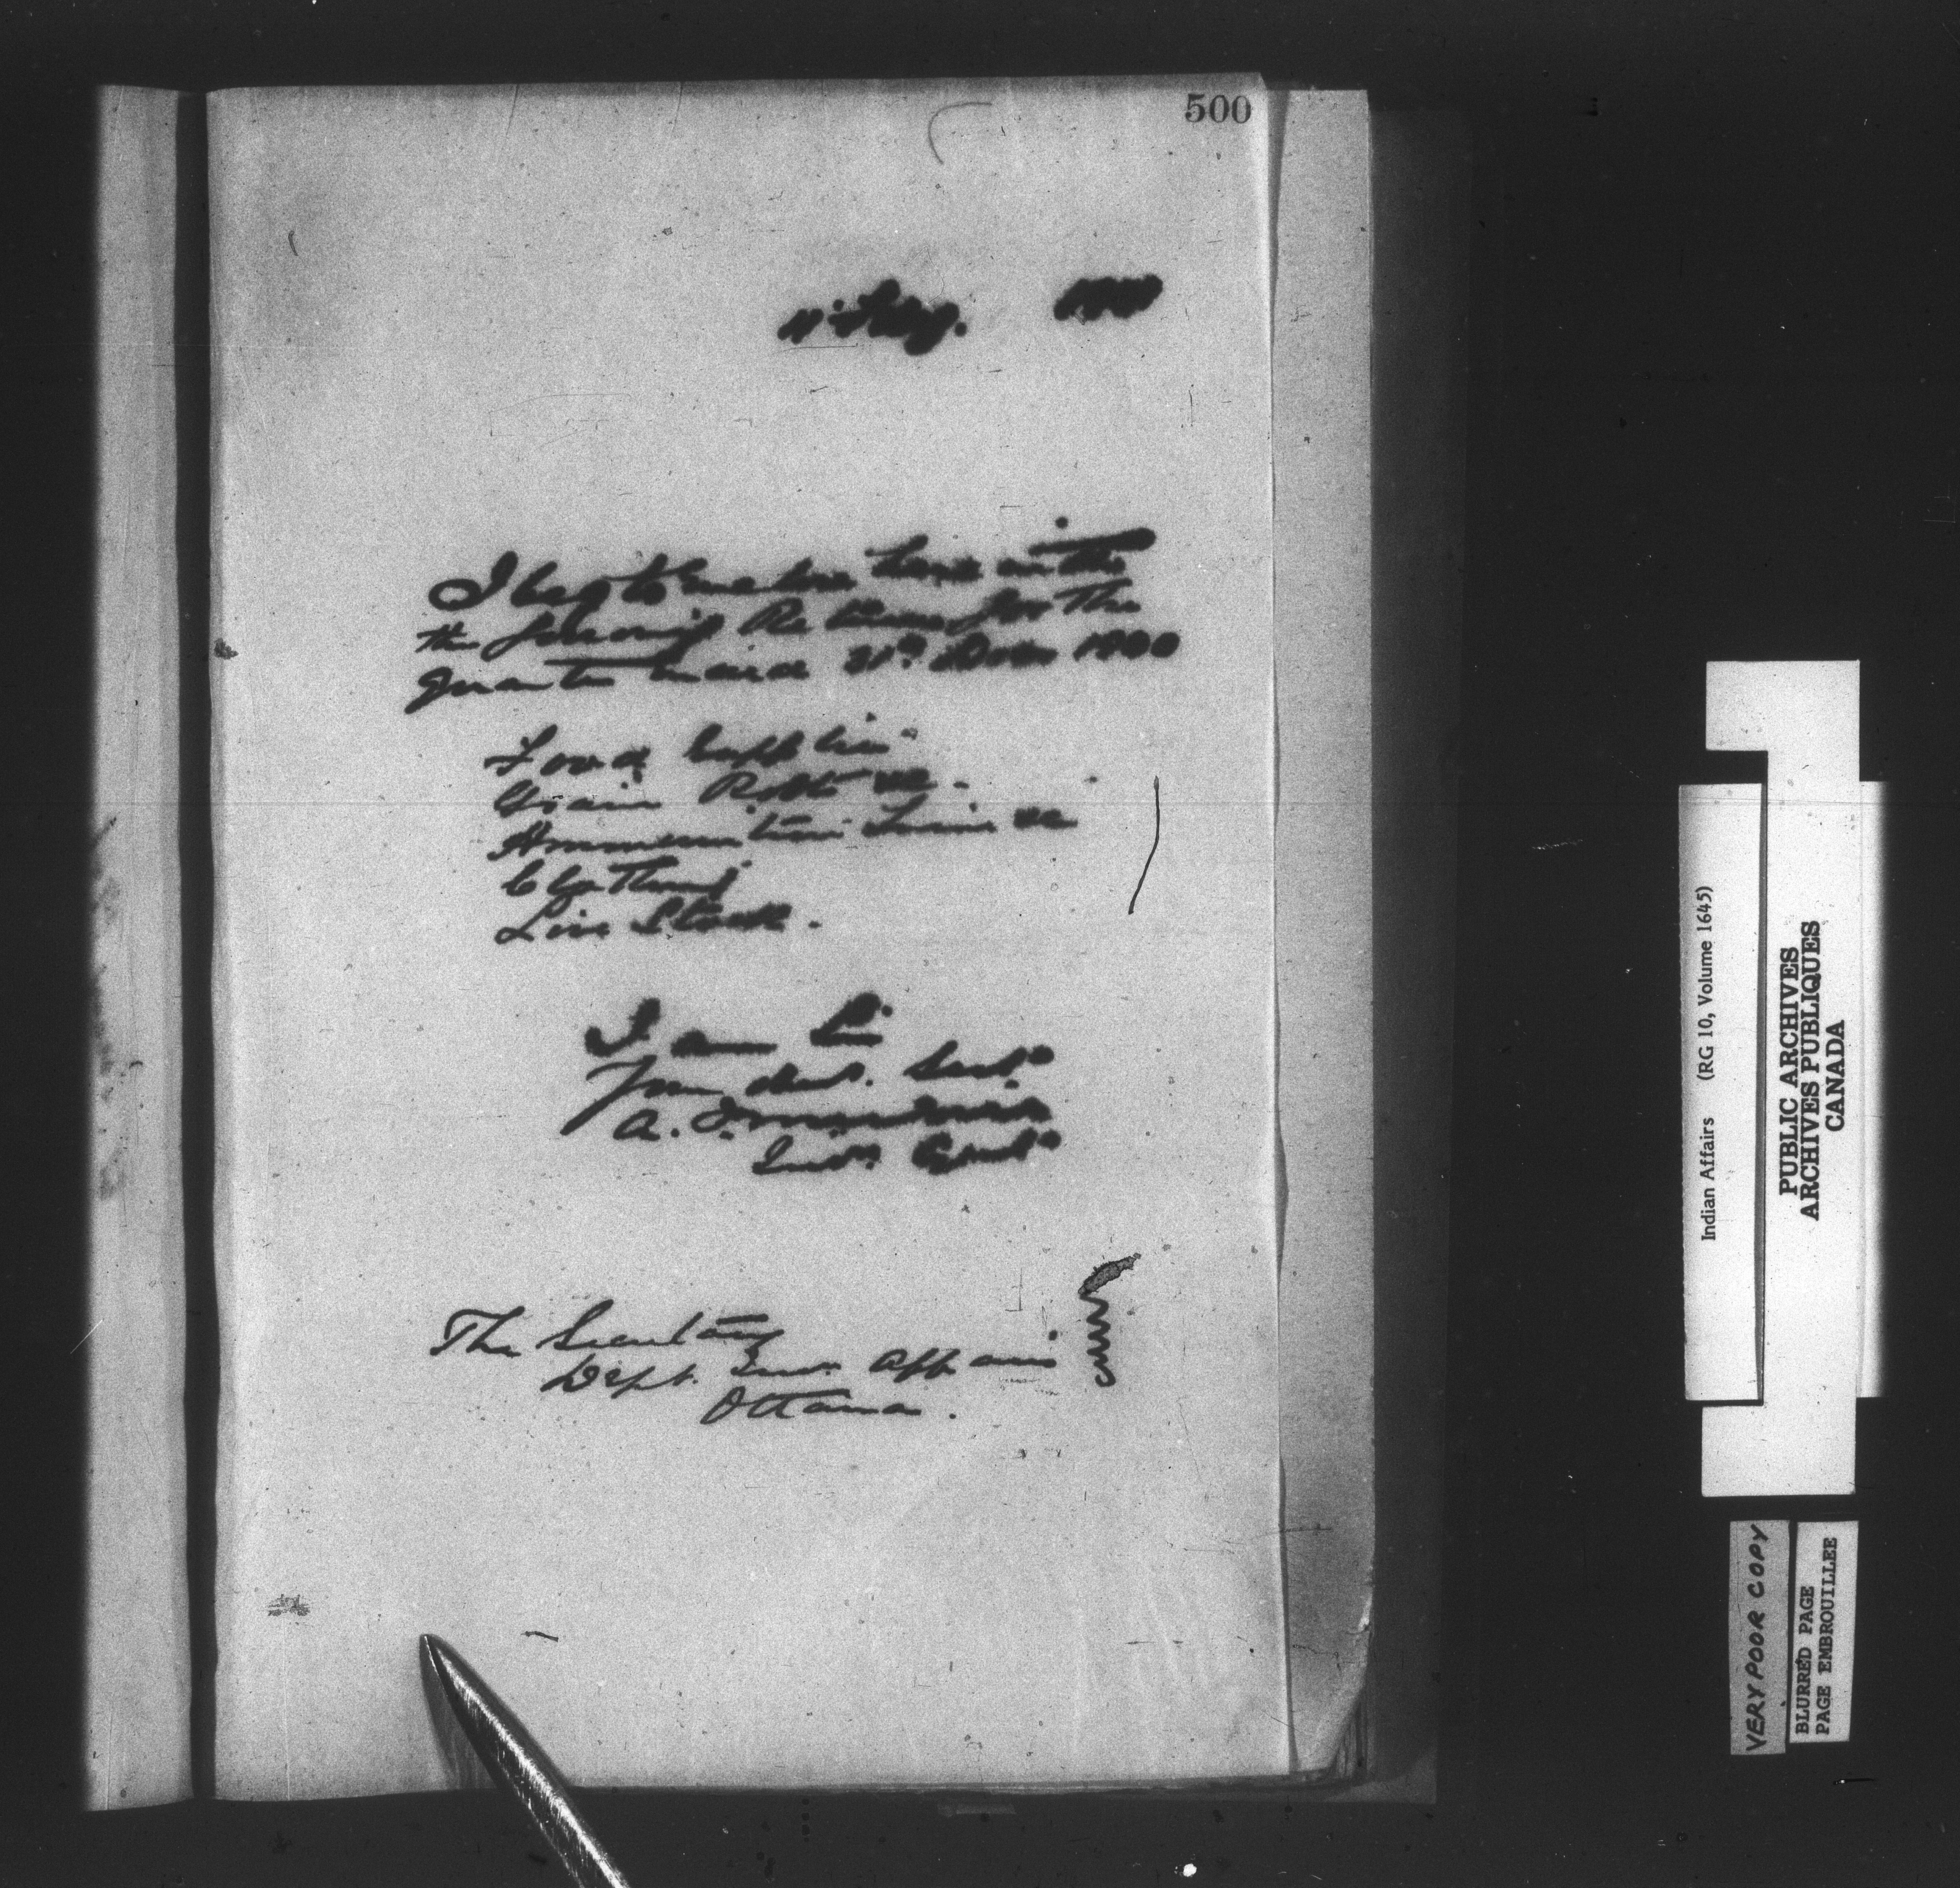 500
I beg to enclose herewith
the following Returns for the
quarter ended 31st Decr 1900
Food Supplies
Grain Roots &c.
Ammunition Twine &c
Clothing
Live Stock.
I am Sir
Your obed. Servt
A.
Indn. Agent
The Secretary
Dept. Ind. Affairs
Ottawa.
Indian Affairs (RG 10, Volume 1645)
PUBLIC ARCHIVES
ARCHIVES PUBLIQUES
CANADA
VERY POOR COPY
BLURRED PAGE
PAGE EMBROUILLEE